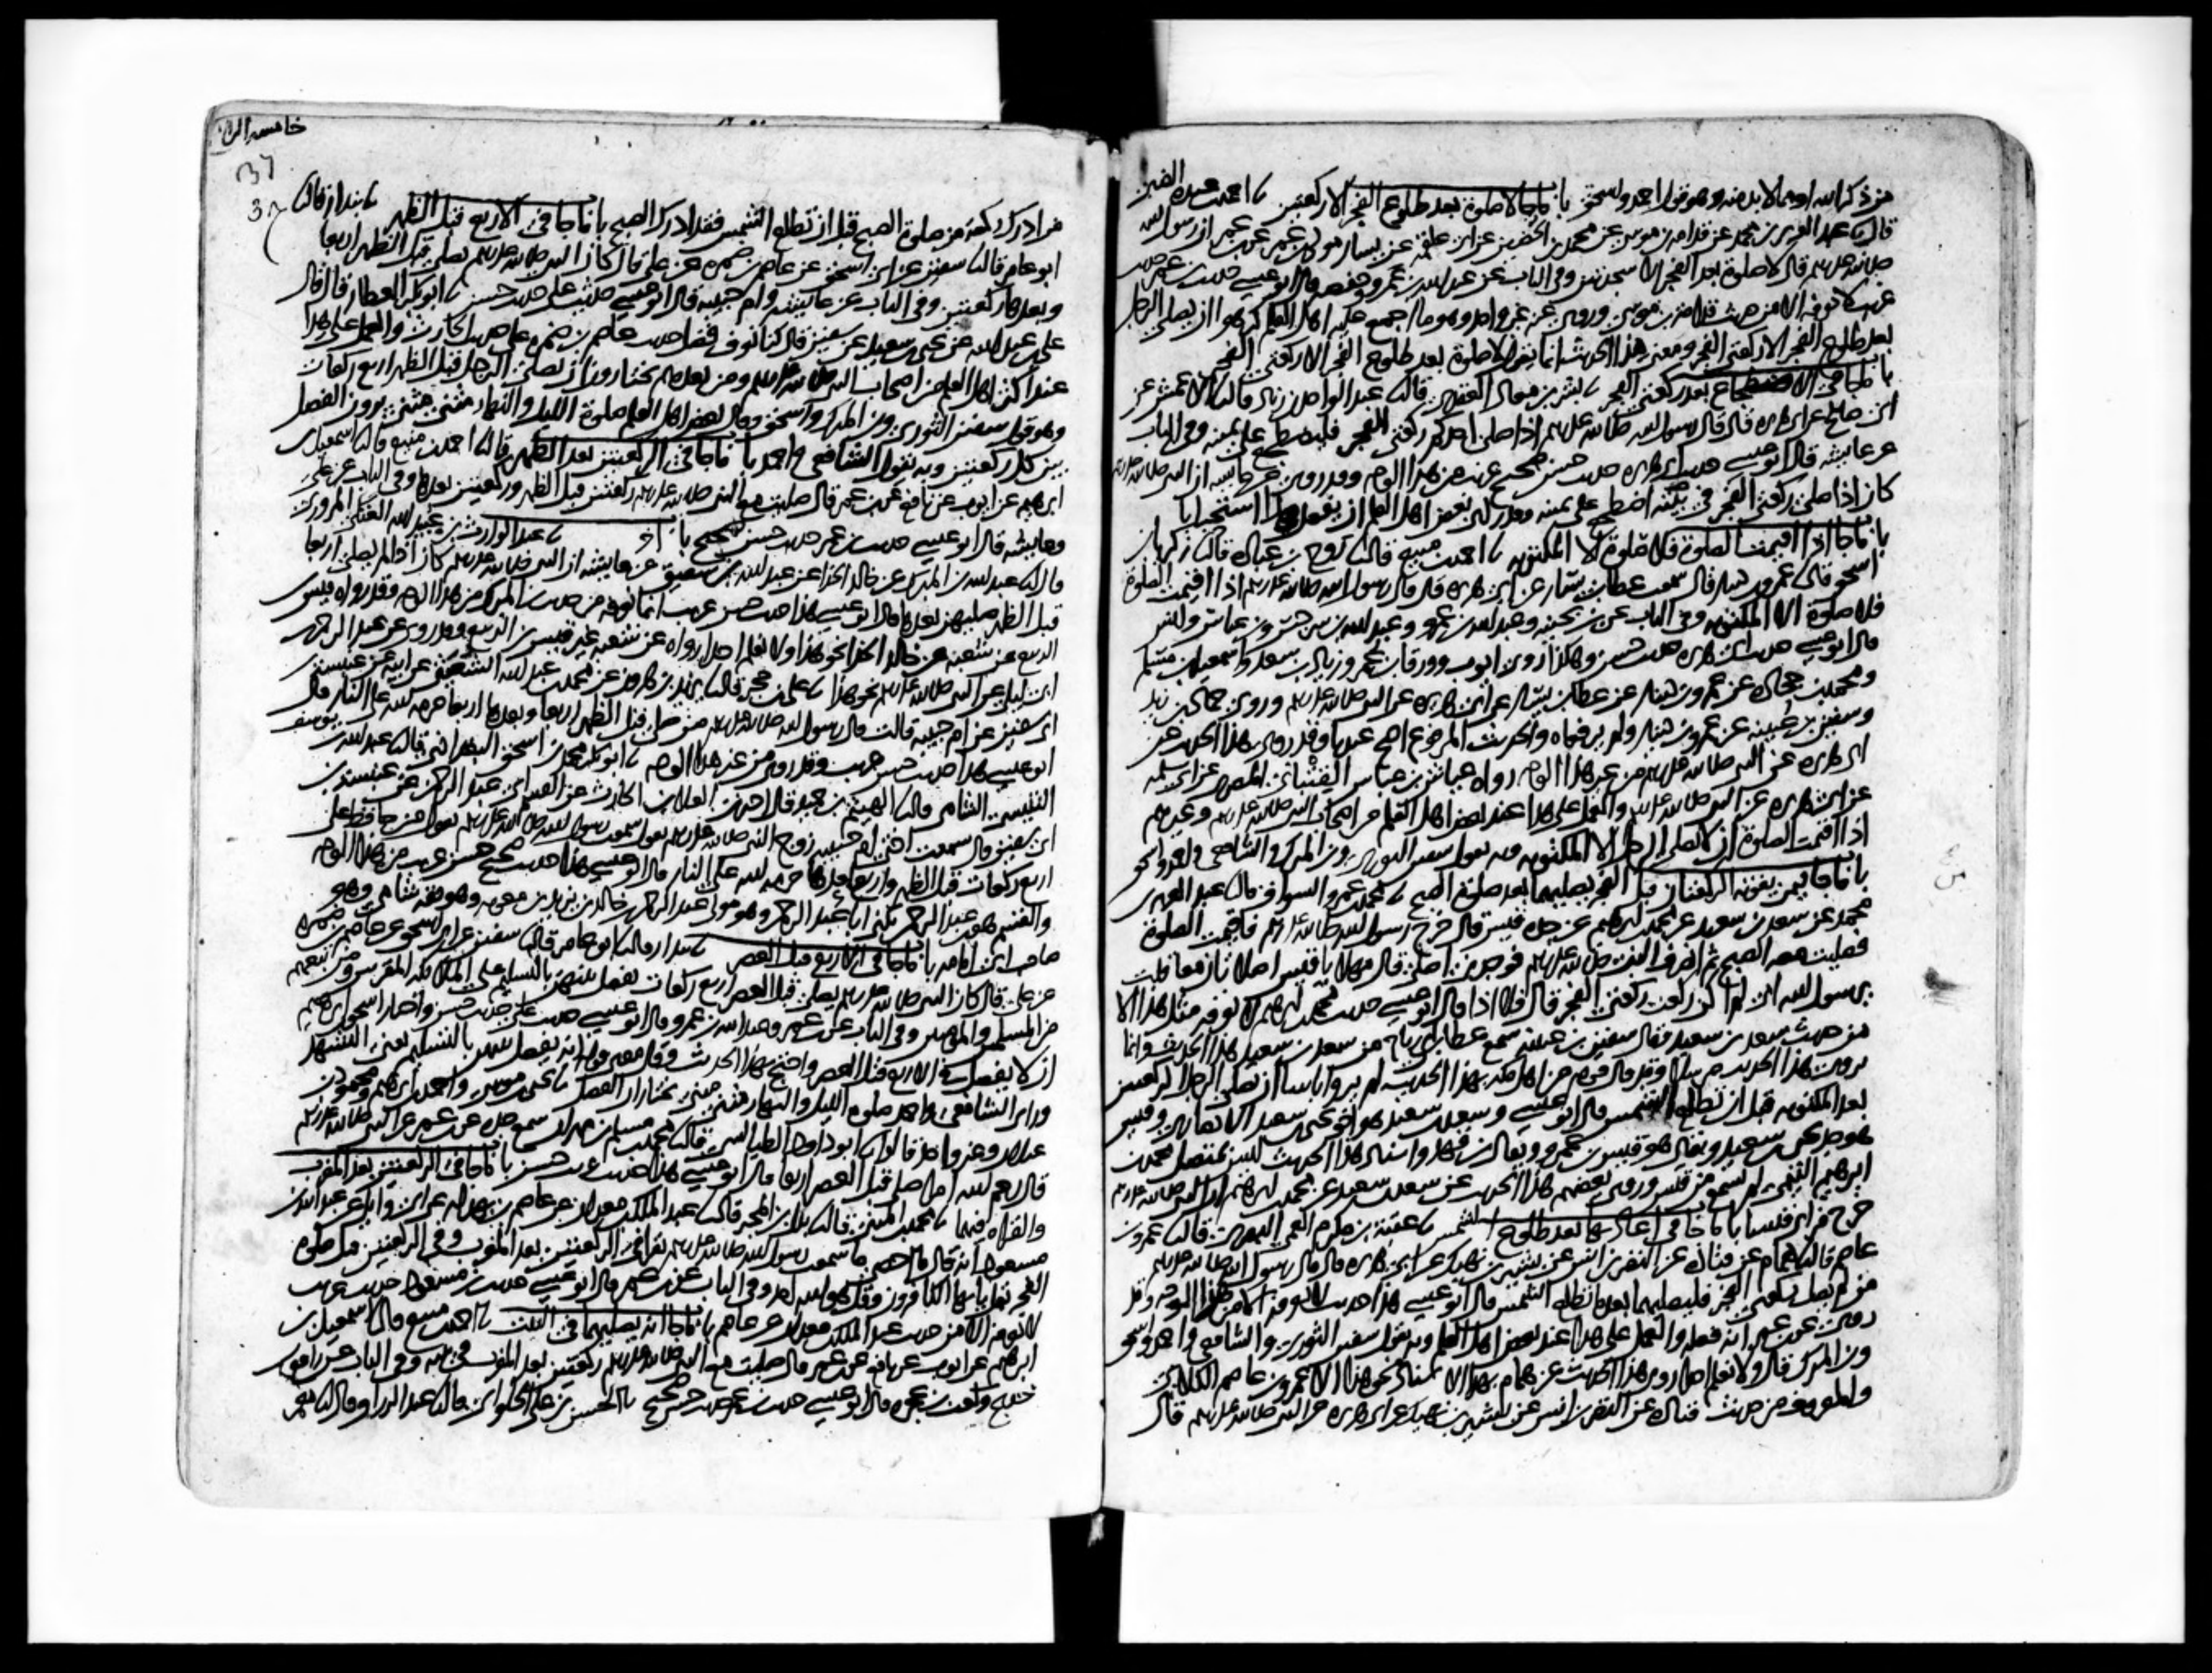 من ذكر الله او مما لابد منه وهو قول احمد واسحق باب ما جا لا صلوة بعد طلوع الفجر الا ركعتين ثنا احمد بن عبدة الضبي
قال ثنا عبد العزيز بن محمد عن قدامة بن موسى عن محمد بن الحصين عن ابي علقمة عن يسار مولى بن عمر عن بن عمر ان رسول الله
صلى الله عليه وسلم قال لا صلوة بعد الفجر الا سجدتين وفي الباب عن عبد الله بن عمرو وحفصة قال ابو عيسى حديث بن عمر حديث
غريب لا نعرفه الا من حديث قدامة بن موسى وروى عنه غير واحد وهو ما اجمع عليه اهل العلم كرهوا ان يصلي الرجل
بعد طلوع الفجر الا ركعتي الفجر ومعنى هذا الحديث انما يقول لا صلوة بعد طلوع الفجر الا ركعتي الفجر
باب ما جا في الاضطجاع بعد ركعتي الفجر ثنا بشر بن معاذ العقدي قال ثنا عبد الواحد بن زياد قال ثنا الاعمش عن
ابي صالح عن ابي هريرة قال قال رسول الله صلى الله عليه وسلم اذا صلى احدكم ركعتي الفجر فليضطجع على يمينه وفي الباب
عن عايشة قال ابو عيسى حديث ابي هريرة حديث حسن صحيح غريب من هذا الوجه وقد روي عن عايشة ان النبي صلى الله عليه وسلم
كان اذا صلى ركعتي الفجر في بيته اضطجع على يمينه وقد راى بعض اهل العلم ان يفعل هذا استحبابا
باب ما جا اذا اقيمت الصلوة فلا صلوة الا المكتوبة ثنا احمد بن منيع قال ثنا روح بن عبادة قال ثنا زكريا بن
اسحق قال ثنا عمرو بن دينار قال سمعت عطا بن يسار عن ابي هريرة قال قال رسول الله صلى الله عليه وسلم اذا اقيمت الصلوة
فلا صلوة الا المكتوبة وفي الباب عن بن بحينة وعبد الله بن عمرو وعبد الله بن سرجس وبن عباس وانس
قال ابو عيسى حديث ابي هريرة حديث حسن وهكذا روى ايوب وورقا بن عمر وزياد بن سعد واسمعيل بن مسلم
ومحمد بن جحادة عن عمرو بن دينار عن عطا بن يسار عن ابي هريرة عن النبي صلى الله عليه وسلم وروى حماد بن زيد
وسفين بن عيينة عن عمرو بن دينار ولم يرفعاه والحديث المرفوع اصح عندنا وقد روي هذا الحديث عن
ابي هريرة عن النبي صلى الله عليه وسلم من غير هذا الوجه رواه عياش بن عباس القتباني المصري عن ابي سلمة
عن ابي هريرة عن النبي صلى الله عليه وسلم والعمل على هذا عند بعض اهل العلم من اصحاب النبي صلى الله عليه وسلم وغيرهم
اذا اقيمت الصلوة ان لا يصلي الرجل الا المكتوبة وبه يقول سفين الثوري وبن المبرك والشافعي واحمد واسحق
باب ما جا فيمن تفوته الركعتان قبل الفجر يصليهما بعد صلوة الصبح ثنا محمد بن عمرو السواق قال ثنا عبد العزيز بن
محمد عن سعد بن سعيد عن محمد بن ابرهيم عن جده قيس قال خرج رسول الله صلى الله عليه وسلم فاقيمت الصلوة
فصليت معه الصبح ثم انصرف النبي صلى الله عليه وسلم فوجدني اصلي قال مهلا يا قيس اصلاتان معا قلت
يرسول الله اني لم اكن ركعت ركعتي الفجر قال فلا اذا قال ابو عيسى حديث محمد بن ابرهيم لا نعرفه مثل هذا الا
من حديث سعد بن سعيد وقال سفين بن عيينة سمع عطا بن ابي رباح من سعد بن سعيد هذا الحديث وانما
يروى هذا الحديث مرسلا وقد قال قوم من اهل مكة بهذا الحديث لم يروا باسا ان يصلي الرجل الركعتين
بعد المكتوبة قبل ان تطلع الشمس قال ابو عيسى وسعد بن سعيد هو اخو يحيى بن سعيد الانصاري وقيس
هو جد يحيى بن سعيد ويقال هو قيس بن عمرو ويقال بن قهد واسناد هذا الحديث ليس بمتصل محمد بن
ابرهيم التيمي لم يسمع من قيس وروى بعضهم هذا الحديث عن سعد بن سعيد عن محمد بن ابرهيم ان النبي صلى الله عليه وسلم
خرج فراى قيسا باب ما جا في اعادتهما بعد طلوع الشمس ثنا عقبة بن مكرم العمي البصري قال ثنا عمرو بن
عاصم قال ثنا همام عن قتادة عن النضر بن انس عن بشير بن نهيك عن ابي هريرة قال قال رسول الله صلى الله عليه وسلم
من لم يصل ركعتي الفجر فليصلهما بعد ما تطلع الشمس قال ابو عيسى هذا حديث لا نعرفه الا من هذا الوجه وقد
روي عن بن عمر انه فعله والعمل على هذا عند بعض اهل العلم وبه يقول سفين الثوري والشافعي واحمد واسحق
وبن المبرك قال ولا نعلم احدا روى هذا الحديث عن همام بهذا الاسناد نحو هذا الا عمرو بن عاصم الكلابي
والمعروف من حديث قتادة عن النضر بن انس عن بشير بن نهيك عن ابي هريرة عن النبي صلى الله عليه وسلم قال
37
من ادرك ركعة من صلوة الصبح قبل ان تطلع الشمس فقد ادرك الصبح باب ما جا في الاربع قبل الظهر ثنا بندار قال ثنا
ابو عامر قال ثنا سفين عن ابي اسحق عن عاصم بن ضمرة عن علي قال كان النبي صلى الله عليه وسلم يصلي قبل الظهر اربعا
وبعدها ركعتين وفي الباب عن عايشة وام حبيبة قال ابو عيسى حديث علي حديث حسن ثنا ابو بكر العطار قال قال
علي بن عبد الله عن يحيى بن سعيد عن سفين قال كنا نعرف فضل حديث عاصم بن ضمرة على حديث الحارث والعمل على هذا
عند اكثر اهل العلم من اصحاب النبي صلى الله عليه وسلم ومن بعدهم يختارون ان يصلي الرجل قبل الظهر اربع ركعات
وهو قول سفين الثوري وبن المبرك واسحق وقال بعض اهل العلم صلوة الليل والنهار مثنى مثنى يرون الفصل
بين كل ركعتين وبه يقول الشافعي واحمد باب ما جا في الركعتين بعد الظهر قال ثنا احمد بن منيع قال ثنا اسمعيل بن
ابرهيم عن ايوب عن نافع عن بن عمر قال صليت مع النبي صلى الله عليه وسلم ركعتين قبل الظهر وركعتين بعدها وفي الباب عن علي
وعايشة قال ابو عيسى حديث بن عمر حديث حسن صحيح باب اخر ثنا عبد الوارث بن عبيد الله العتكي المروزي
قال ثنا عبد الله بن المبرك عن خالد الحذا عن عبد الله بن شقيق عن عايشة ان النبي صلى الله عليه وسلم كان اذا لم يصل اربعا
قبل الظهر صليهن بعدها قال ابو عيسى هذا حديث حسن غريب انما نعرفه من حديث بن المبرك من هذا الوجه وقد رواه قيس بن
الربيع عن شعبة عن خالد الحذا نحو هذا ولا نعلم احدا رواه عن شعبة غير قيس بن الربيع وقد روي عن عبد الرحمن بن
ابي ليلى عن النبي صلى الله عليه وسلم نحو هذا ثنا علي بن حجر قال ثنا يزيد بن هرون عن محمد بن عبد الله الشعيثي عن ابيه عن عنبسة بن
ابي سفين عن ام حبيبة قالت قال رسول الله صلى الله عليه وسلم من صلى قبل الظهر اربعا وبعدها اربعا حرمه الله على النار قال
ابو عيسى هذا حديث حسن غريب وقد روي من غير هذا الوجه ثنا ابو بكر محمد بن اسحق البغدادي قال ثنا عبد الله بن يوسف
التنيسي الشامي قال ثنا الهيثم بن حميد قال اخبرني العلا بن الحارث عن القسم ابي عبد الرحمن عن عنبسة بن
ابي سفين قال سمعت اختي ام حبيبة زوج النبي صلى الله عليه وسلم تقول سمعت رسول الله صلى الله عليه وسلم يقول من حافظ على
اربع ركعات قبل الظهر واربع بعدها حرمه الله على النار قال ابو عيسى هذا حديث صحيح حسن غريب من هذا الوجه
والقسم هو بن عبد الرحمن يكنى ابا عبد الرحمن وهو مولى عبد الرحمن بن خالد بن يزيد بن معوية وهو ثقة شامي وهو
صاحب ابي امامة باب ما جا في الاربع قبل العصر ثنا بندار قال ثنا ابو عامر قال ثنا سفين عن ابي اسحق عن عاصم بن ضمرة
عن علي قال كان النبي صلى الله عليه وسلم يصلي قبل العصر اربع ركعات يفصل بينهن بالتسليم على الملايكة المقربين ومن تبعهم
من المسلمين والمومنين وفي الباب عن بن عمر وعبد الله بن عمرو قال ابو عيسى حديث علي حديث حسن واختار اسحق بن ابرهيم
ان لا يفصل في الاربع قبل العصر واحتج بهذا الحديث وقال معنى قوله انه يفصل بينهن بالتسليم يعني التشهد
وراى الشافعي واحمد صلوة الليل والنهار مثنى مثنى يختاران الفصل ثنا يحيى بن موسى واحمد بن ابرهيم ومحمود بن
غيلان وغير واحد قالوا ثنا ابو داود الطيالسي قال ثنا محمد بن مسلم بن مهران سمع جده عن بن عمر عن النبي صلى الله عليه وسلم
قال رحم الله امرا صلى قبل العصر اربعا قال ابو عيسى هذا حديث غريب حسن باب ما جا في الركعتين بعد المغرب
والقراة فيهما ثنا محمد بن المثنى قال ثنا بدل بن المحبر قال ثنا عبد الملك بن معدان عن عاصم بن بهدلة عن ابي وايل عن عبد الله بن
مسعود انه قال ما احصي ما سمعت رسول الله صلى الله عليه وسلم يقرا في الركعتين بعد المغرب وفي الركعتين قبل صلوة
الفجر بقل يا ايها الكافرون وقل هو الله احد وفي الباب عن بن عمر قال ابو عيسى حديث بن مسعود حديث غريب
لا نعرفه الا من حديث عبد الملك بن معدان عن عاصم باب ما جا انه يصليهما في البيت ثنا احمد بن منيع قال ثنا اسمعيل بن
ابرهيم عن ايوب عن نافع عن بن عمر قال صليت مع النبي صلى الله عليه وسلم ركعتين بعد المغرب في بيته وفي الباب عن رافع بن
خديج وكعب بن عجرة قال ابو عيسى حديث بن عمر حديث حسن صحيح ثنا الحسن بن علي الحلواني قال ثنا عبد الرزاق قال ثنا معمر